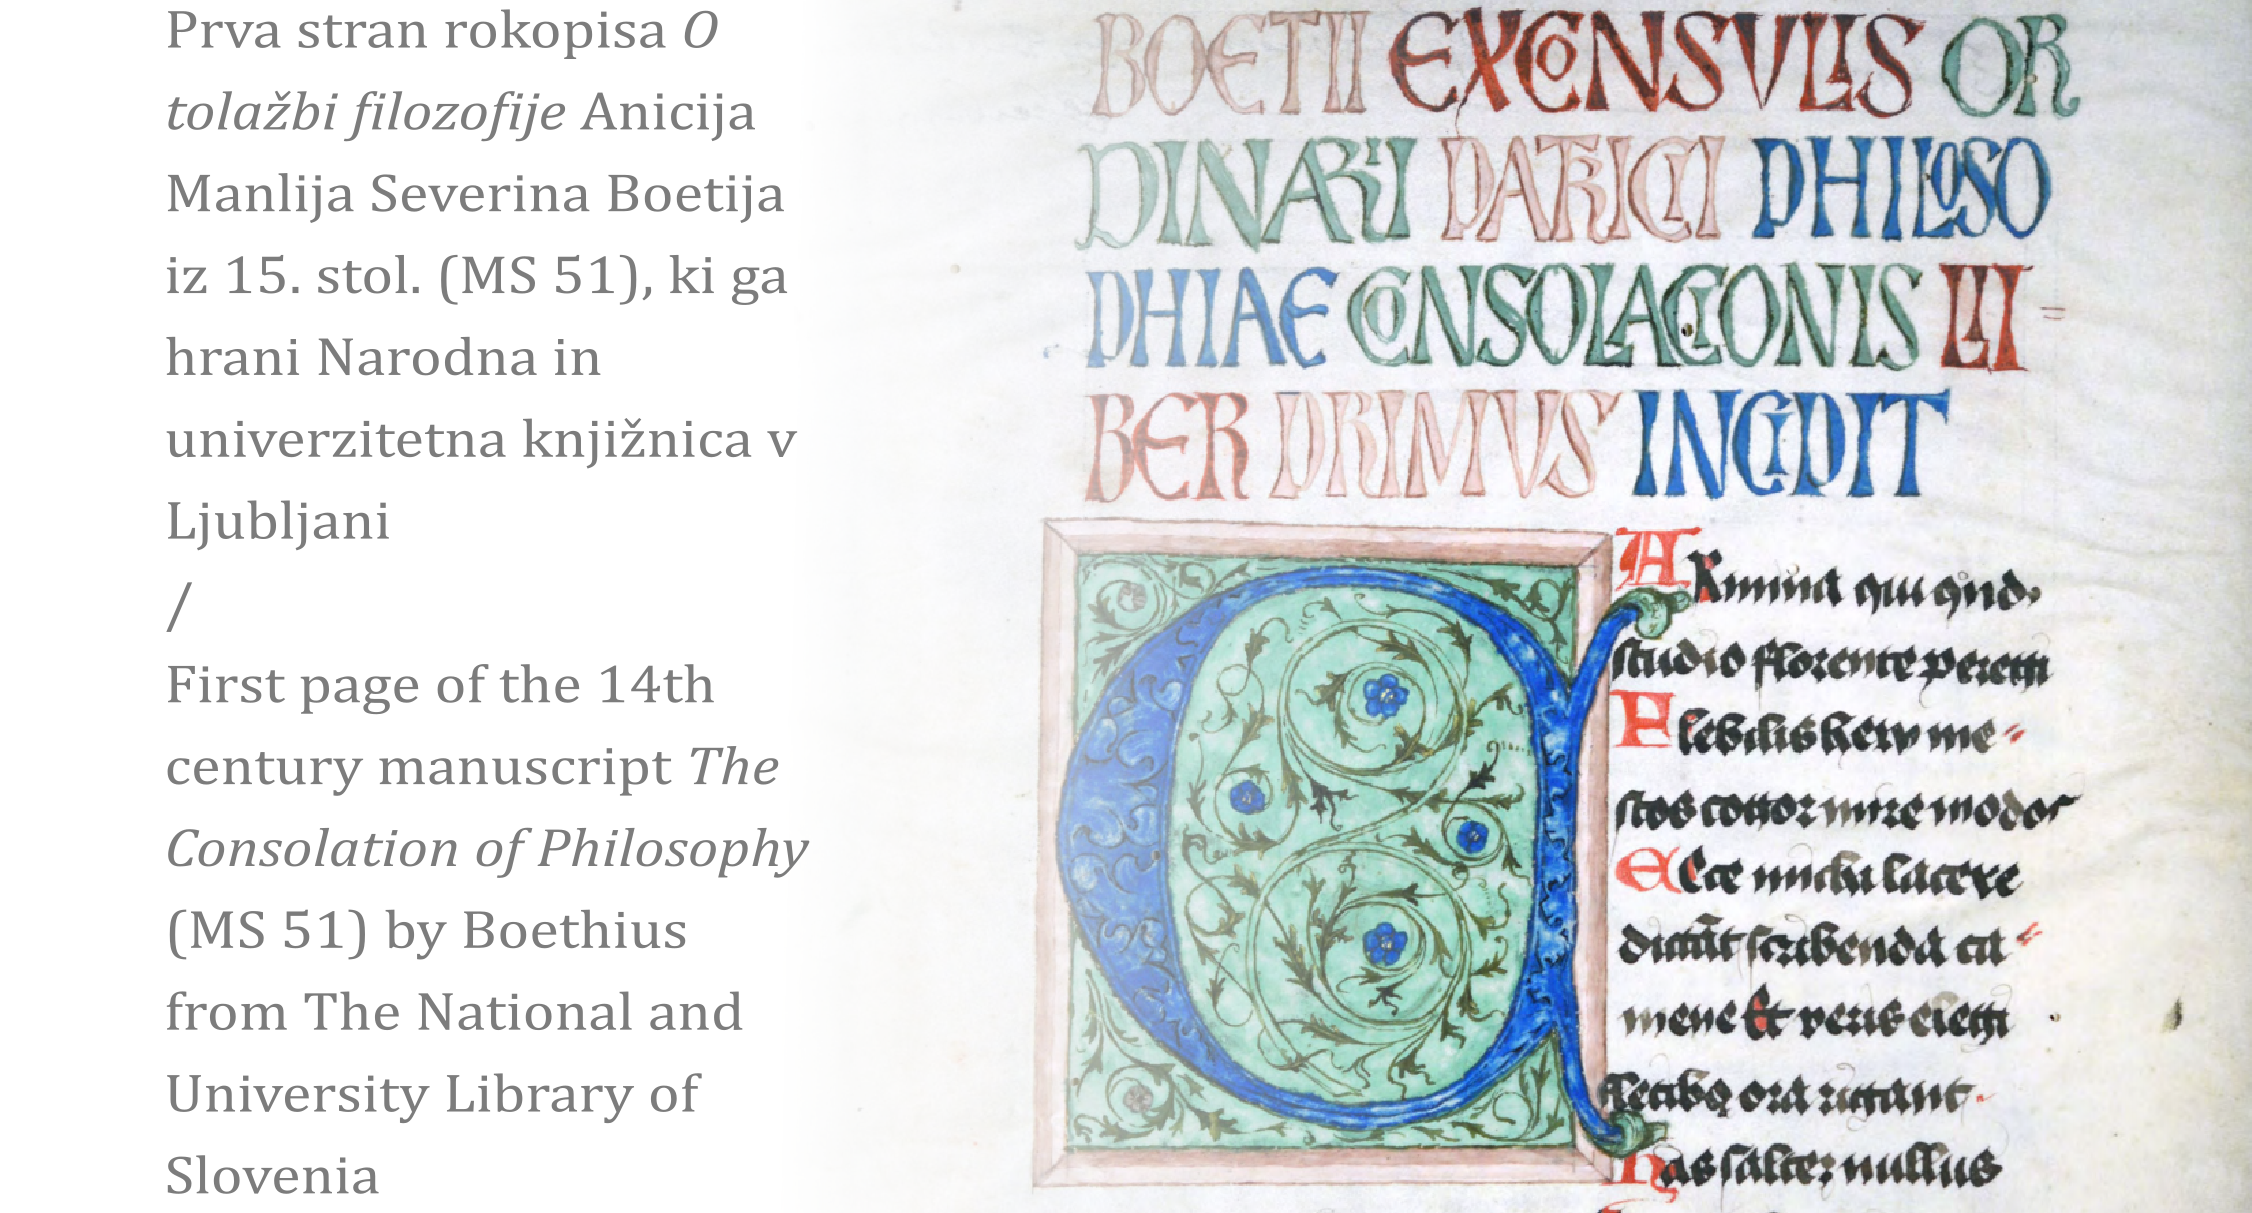 Prva stran rokopisa O
tolažbi filozofije Anicija
Manlija Severina Boetija
iz 15. stol. (MS 51), ki ga
hrani Narodna in
univerzitetna knjižnica v
Ljubljani
/
First page of the 14th
century manuscript The
Consolation of Philosophy
(MS 51) by Boethius
from The National and
University Library of
Slovenia
BOETII EXCONSVLIS OR
DINARII PATRICII PHILOSO
PHIAE CONSOLACIONIS LI
BER PRIMUS INCIPIT
C
ARmina qui qnd
studio florente peregi
Flebilis heu me
stos cogor inire modos
Ecce
dictāt scribenda ca
mene Et veris elegi
fletibq ora rigant
has saltez nullus